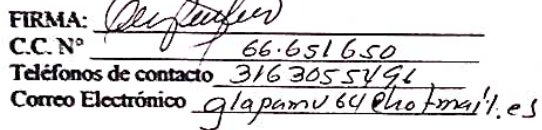 FIRMA:
C.C. N° 66.651650
Teléfonos de contacto 3163055491
Correo Electrónico glapamv64@hotmail.es